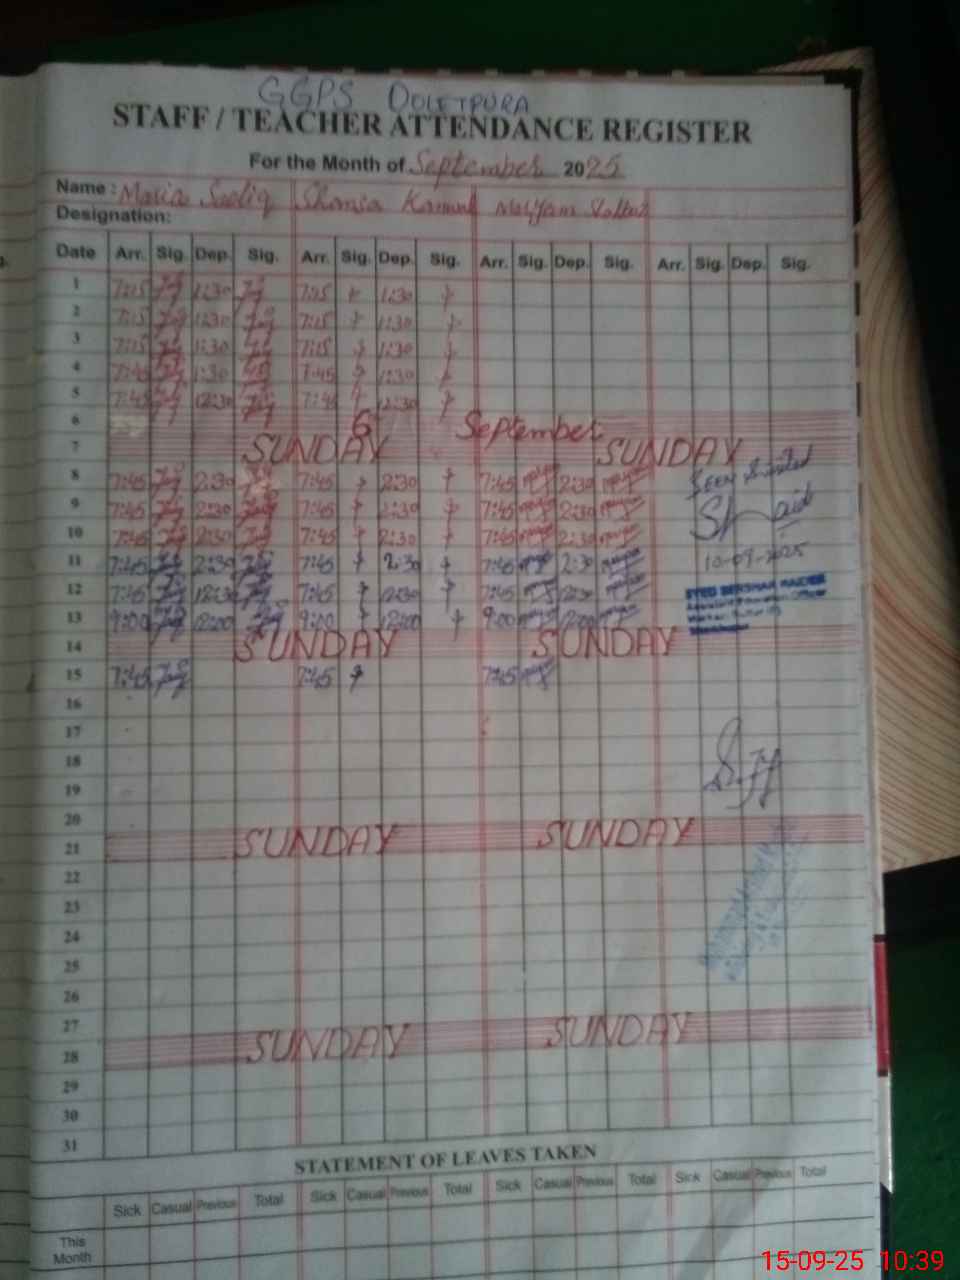 GGPS DOLETPURA
STAFF / TEACHER ATTENDANCE REGISTER
For the Month of September 2025
Name : Maria Shamsa Kanwal Maryam
Designation:
Date Arr. Sig. Dep. Sig. Arr. Sig. Dep. Sig. Arr. Sig. Dep. Sig. Arr. Sig. Dep. Sig.
1 7:15 1:30 7:15 1:30
2 7:15 1:30 7:15 1:30
3 7:15 1:30 7:15 1:30
4 7:45 1:30 7:45 1:30
5 7:45 12:30 7:45 12:30
6 6 September
7 SUNDAY SUNDAY
8 7:45 2:30 7:45 2:30 7:45 2:30
SEEN
9 7:45 2:30 7:45 2:30 7:45 2:30
10 7:45 2:30 7:45 2:30 7:45 2:30
11 7:45 2:30 7:45 2:30 7:45 2:30 10-09-2025
12 7:45 12:30 7:45 12:30 7:45 12:30
13 9:00 12:00 9:00 12:00 9:00 12:00
14 SUNDAY SUNDAY
15 7:45 7:45 7:45
16
17
18
19
20
21 SUNDAY SUNDAY
22
23
24
25
26
27
28 SUNDAY SUNDAY
29
30
31
STATEMENT OF LEAVES TAKEN
Sick Casual Previous Total Sick Casual Previous Total Sick Casual Previous Total Sick Casual Previous Total
This
Month
15-09-25 10:39